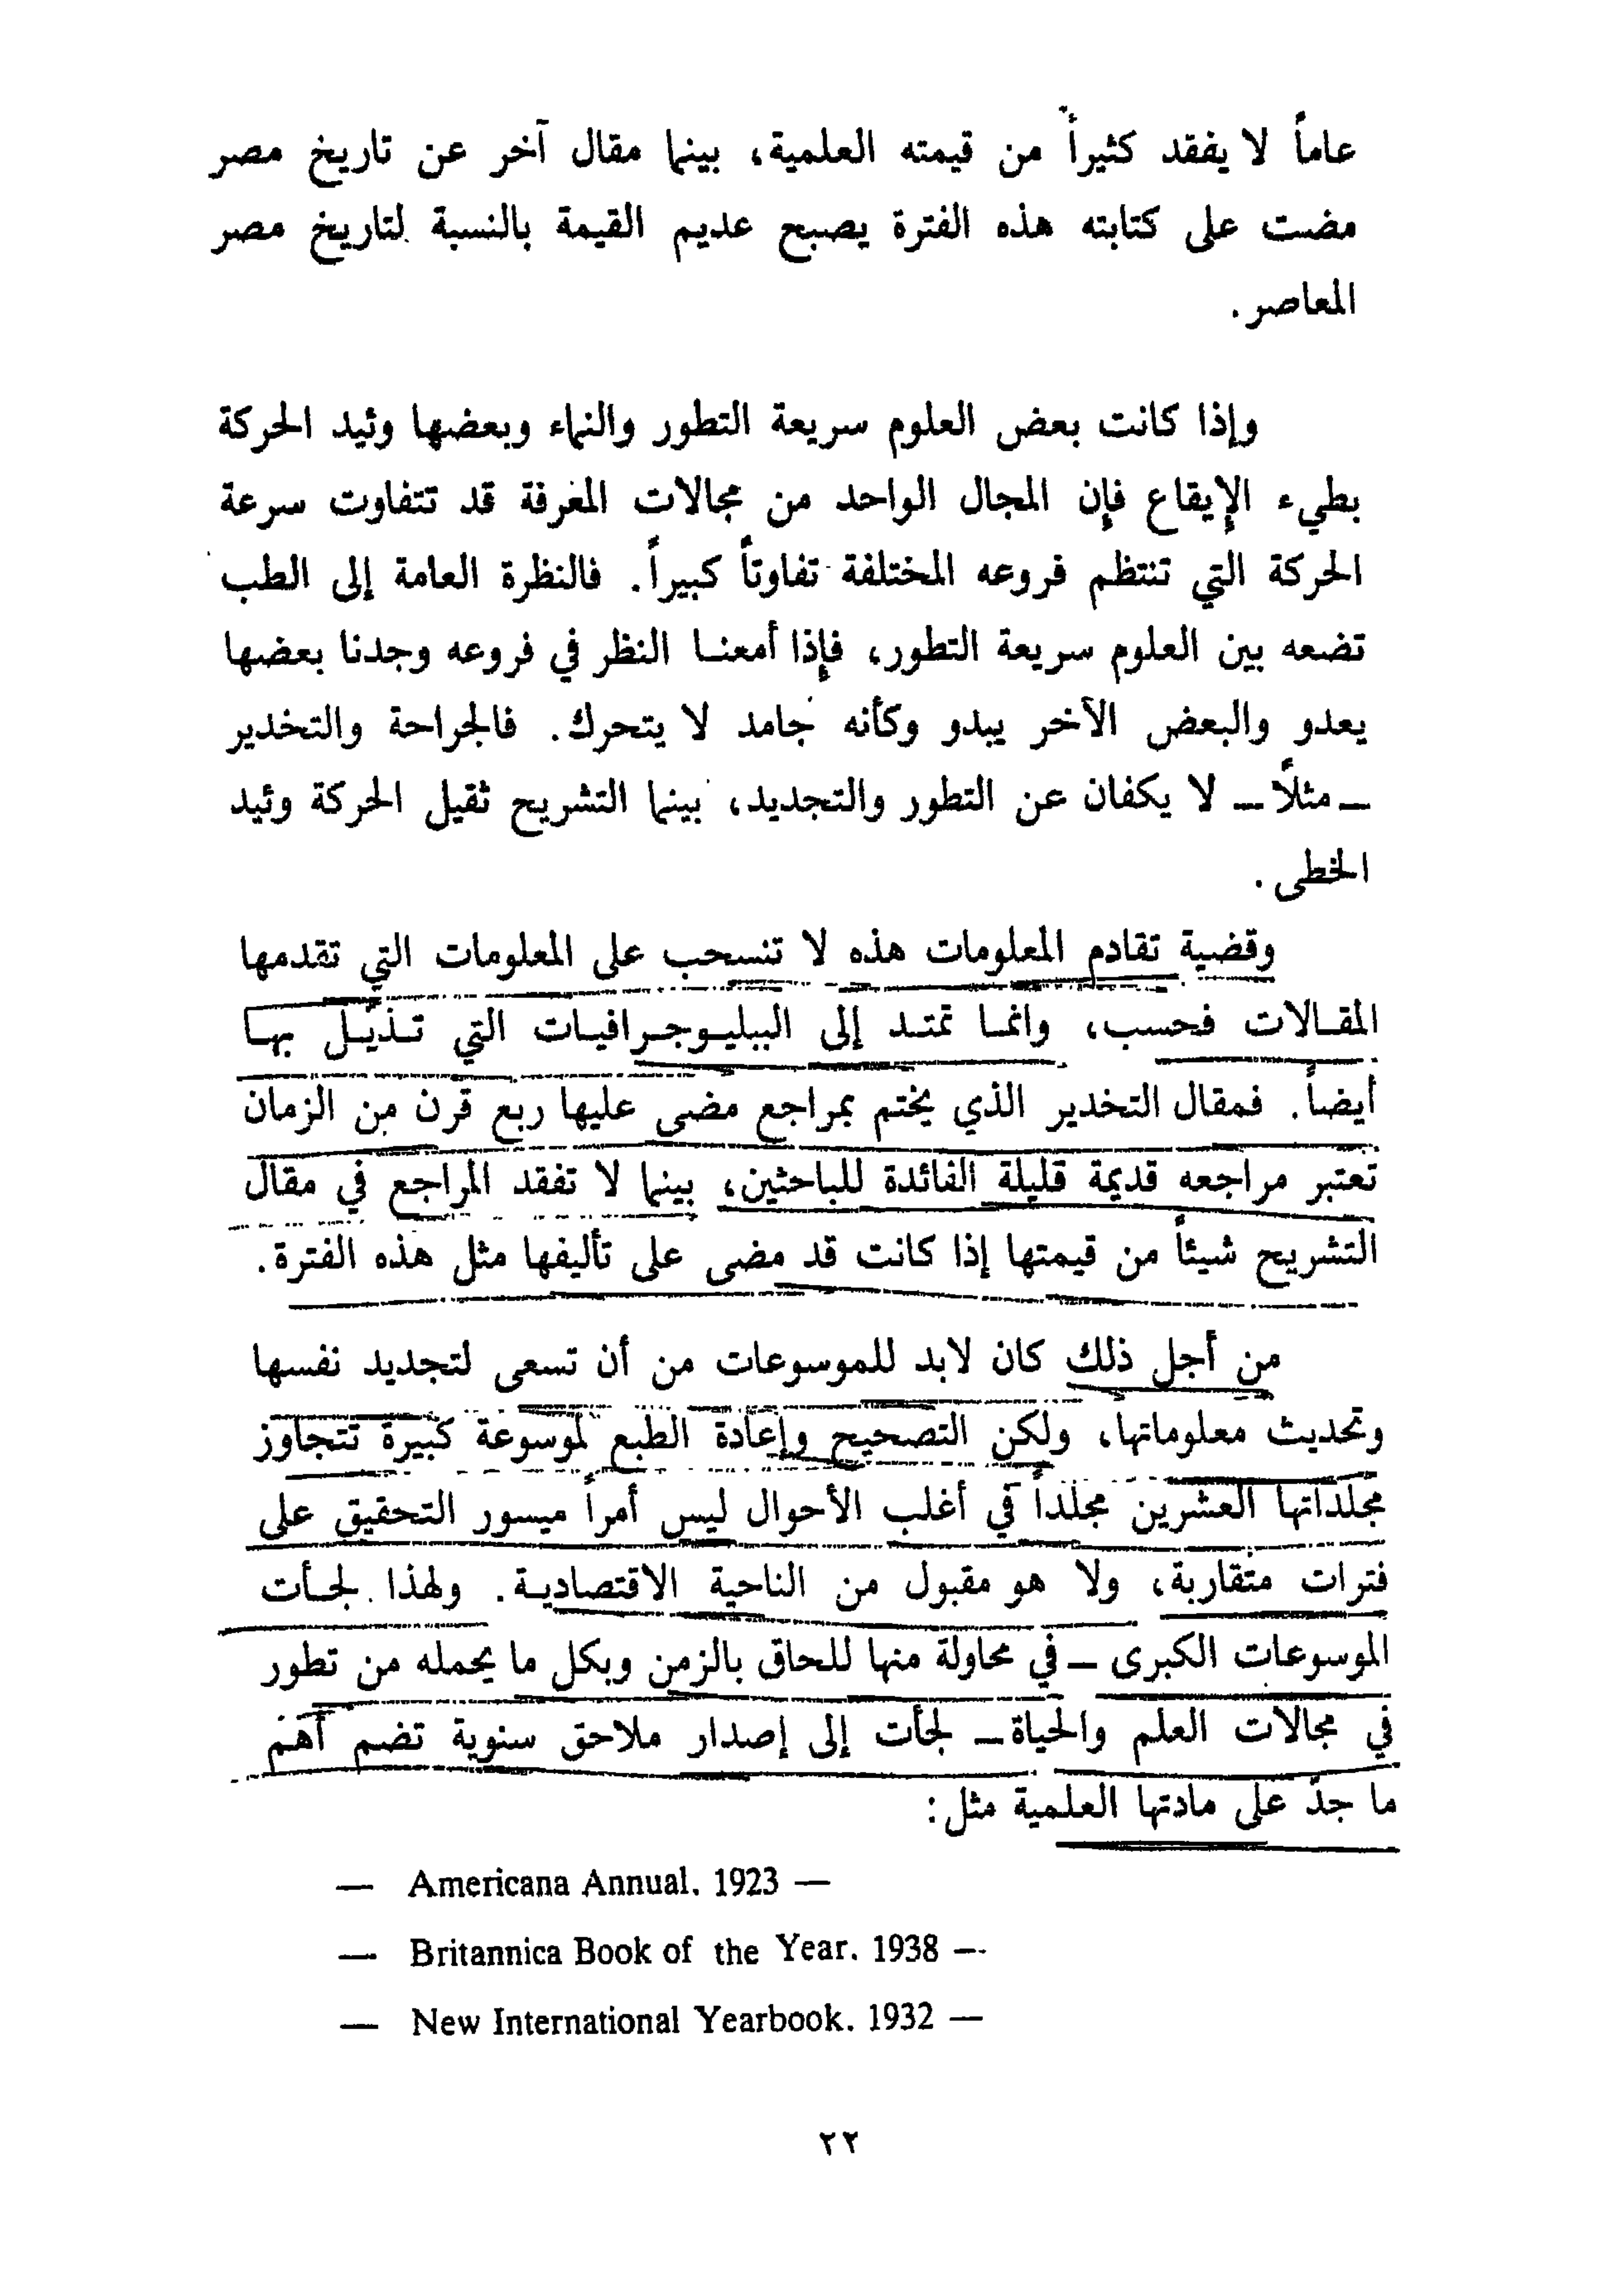 عاماً لا يفقد كثيراً من قيمته العلمية، بينما مقال آخر عن تاريخ مصر
مضت على كتابته هذه الفترة يصبح عديم القيمة بالنسبة لتاريخ مصر
المعاصر.
وإذا كانت بعض العلوم سريعة التطور والنماء وبعضها وئيد الحركة
بطيء الإيقاع فإن المجال الواحد من مجالات المعرفة قد تتفاوت سرعة
الحركة التي تنتظم فروعه المختلفة تفاوتاً كبيراً. فالنظرة العامة إلى الطب
تضعه بين العلوم سريعة التطور، فإذا أمعنا النظر في فروعه وجدنا بعضها
يعدو والبعض الآخر يبدو وكأنه جامد لا يتحرك. فالجراحة والتخدير
– مثلاً – لا يكفان عن التطور والتجديد، بينما التشريح ثقيل الحركة وئيد
الخطى.
وقضية تقادم المعلومات هذه لا تنسحب على المعلومات التي تقدمها
المقالات فحسب، وانما تمتد إلى الببليوجرافيات التي تذيّل بها
أيضاً. فمقال التخدير الذي يختم بمراجع مضى عليها ربع قرن من الزمان
تعتبر مراجعه قديمة قليلة الفائدة للباحثين، بينما لا تفقد المراجع في مقال
التشريح شيئاً من قيمتها إذا كانت قد مضى على تأليفها مثل هذه الفترة.
من أجل ذلك كان لابد للموسوعات من أن تسعى لتجديد نفسها
وتحديث معلوماتها، ولكن التصحيح وإعادة الطبع لموسوعة كبيرة تتجاوز
مجلداتها العشرين مجلداً في أغلب الأحوال ليس أمراً ميسور التحقيق على
فترات متقاربة، ولا هو مقبول من الناحية الاقتصادية. ولهذا لجأت
الموسوعات الكبرى – في محاولة منها للحاق بالزمن وبكل ما يحمله من تطور
في مجالات العلم والحياة – لجأت إلى إصدار ملاحق سنوية تضم أهم
ما جدّ على مادتها العلمية مثل:
— Americana Annual. 1923 —
— Britannica Book of the Year. 1938 —
— New International Yearbook. 1932 —
٢٢